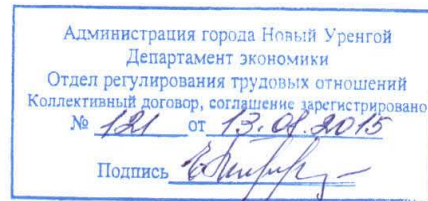 Администрация города Новый Уренгой
Департамент экономики
Отдел регулирования трудовых отношений
Коллективный договор, соглашение зарегистрировано
№ 121 от 13.01.2015
Подпись